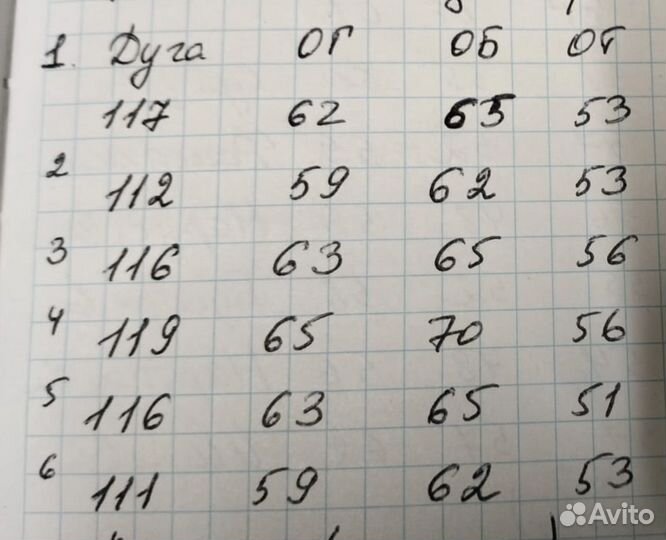 1. Дуга ОГ ОБ ОТ
117 62 65 53
2 112 59 62 53
3 116 63 65 56
4 119 65 70 56
5 116 63 65 51
6 111 59 62 53
Avito